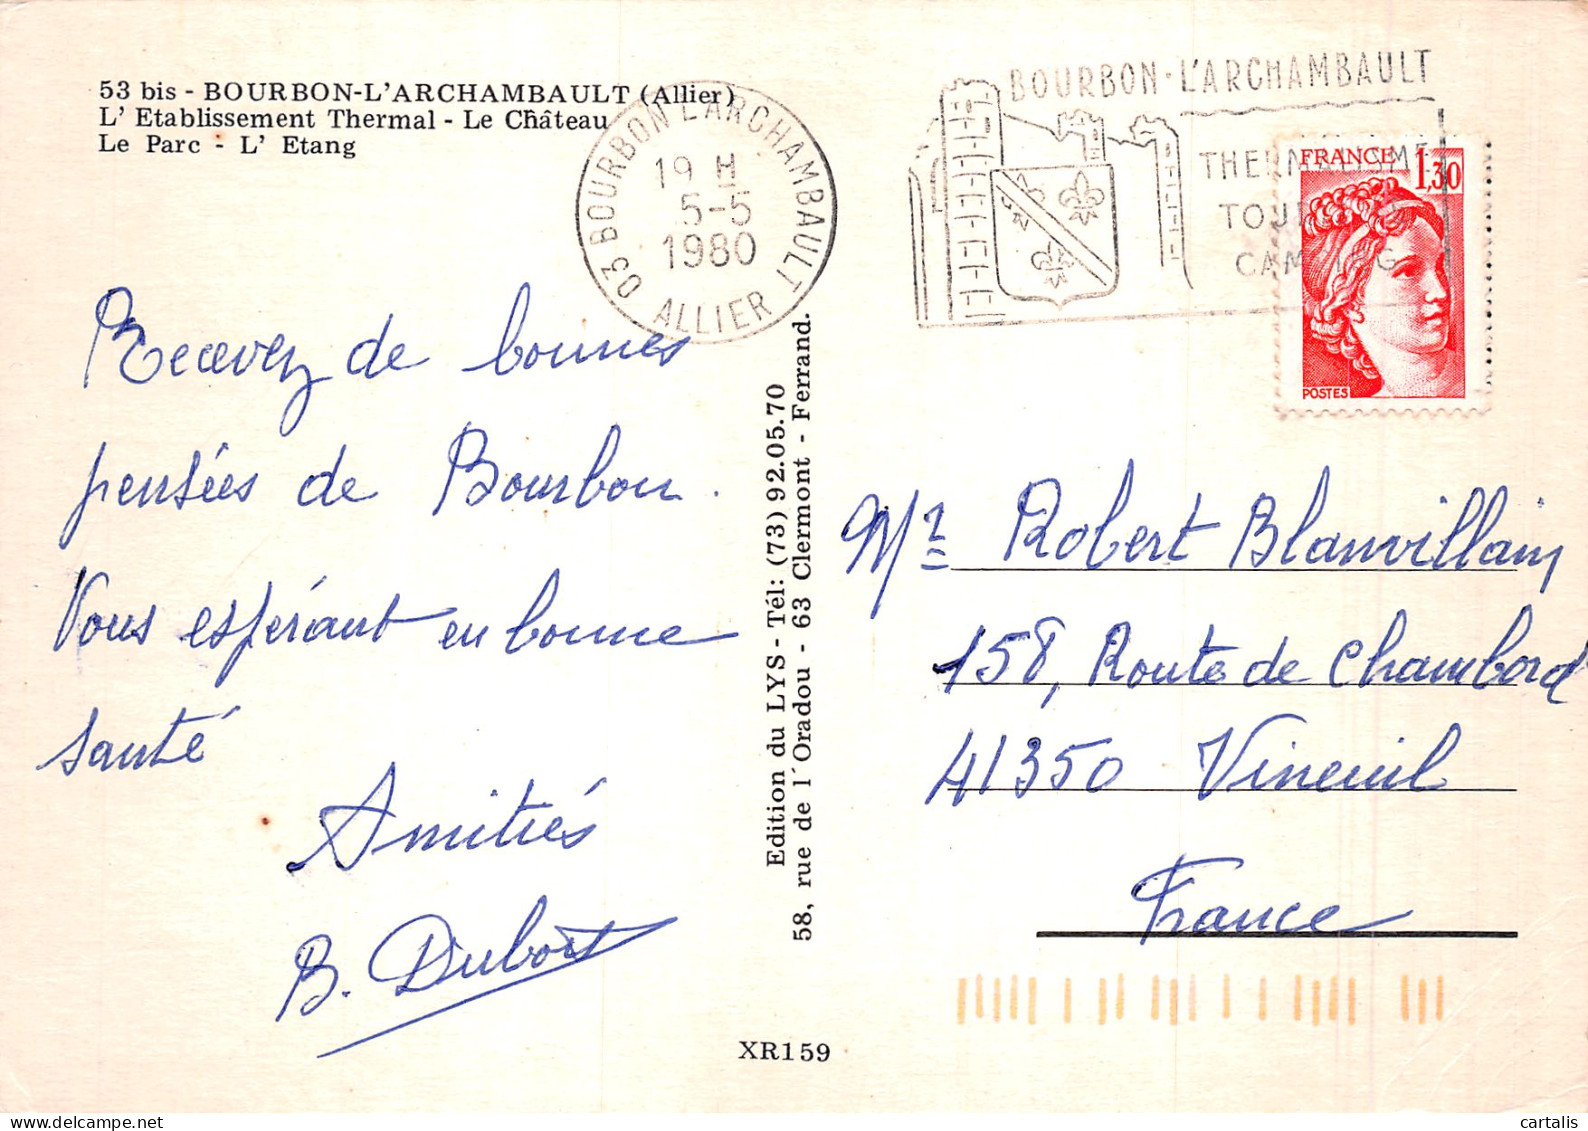 53 bis - BOURBON-L'ARCHAMBAULT (Allier)
L' Etablissement Thermal - Le Château
Le Parc - L' Etang
03 BOURBON L'ARCHAMBAULT
19 H
5-5
1980
ALLIER
BOURBON-L'ARCHAMBAULT
FRANCE 1,30
POSTES
Recevez de bonnes
pensées de Bourbon.
Vous espérant en bonne
santé
Amitiés
B. Dubost
Edition du LYS - Tél: (73) 92.05.70
58, rue de l'Oradou - 63 Clermont - Ferrand.
Mr Robert Blanvillain
158, Route de Chambord
41350 Vineuil
France
XR159
cartalis